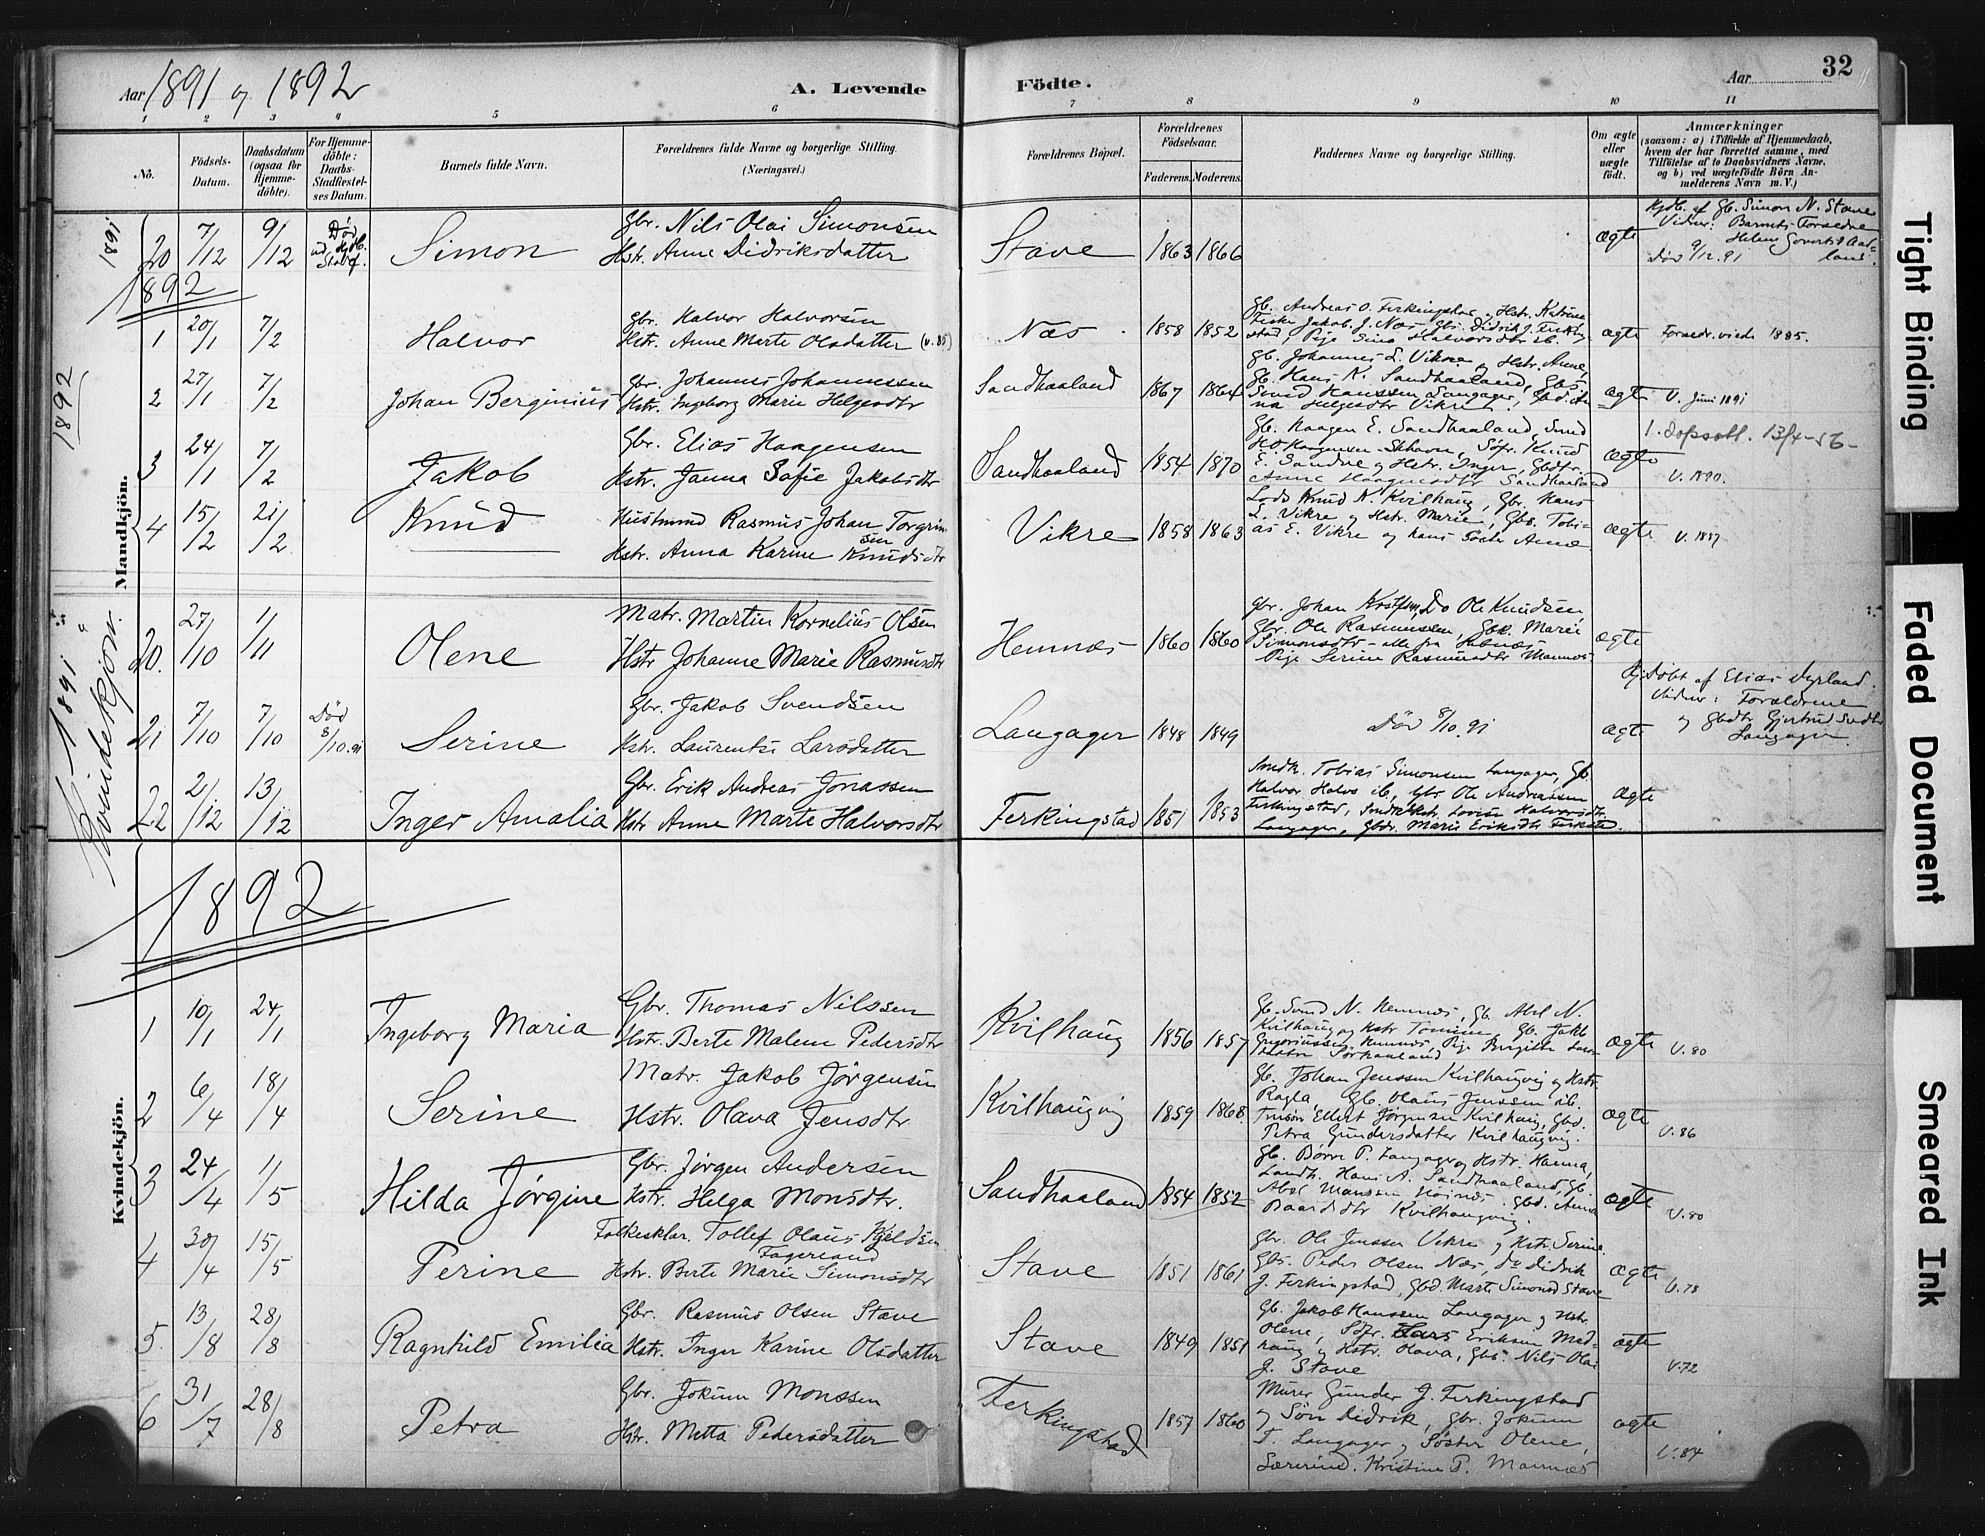 Aar 1891 og 1892 A. Levende Födte. Aar 32
1 2 3 4 5 6 7 8 9 10 11
No. Födsels-Datum. Daabsdatum (ogsaa for Hjemme-döbte). For Hjemme-döbte: Daabs-Stadfæstel-ses Datum. Barnets fulde Navn. Forældrenes fulde Navne og borgerlige Stilling (Næringsvei.) Forældrenes Bopæl. Forældrenes Födselsaar. Faderens. Moderens. Faddernes Navne og borgerlige Stilling. Om ægte eller uægte födt. Anmærkninger (saasom: a) i Tilfælde af Hjemmedaab, hvem der har forrettet samme, med Tilföielse af to Daabsvidners Navne, og b) ved uægtefödte Börn An-melderens Navn m. V.)
1891
20 7/12 9/12 Død Simon Gbr. Nils Olai Simonsen
Hstr. Anne Didriksdatter Stave 1863 1866 ægte Hjdb. af Gb. Simon N. Stave
Død 9/12.91
1892
1892
Mandkjön.
1 20/1 7/2 Halvor Gbr. Halvor Halvorsen
Hstr. Anne Marte Olsdatter (v. 85) Næs 1858 1852 Gb. Andreas O. Ferkingstad og Hstr. Katrine
ægte Forældr. viede 1885.
2 27/1 7/2 Johan Berginius Gbr. Johannes Johannessen
Hstr. Ingeborg Marie Helgesdtr Sandhaaland 1867 1864 Gb. Johannes L. Vikre og Hstr. Anne,
Gb. Hans K. Sandhaaland, Gbs.
Svend Hanssen Langager, Gbd. An-
na Helgesdtr Vikre. ægte V. Juni 1891
3 24/1 7/2 Jakob Gbr. Elias Haagensen
Hstr. Janna Sofie Jakobsdtr Sandhaaland 1854 1870 Gb. Haagen E. Sandhaaland, Smd
E. Sandve og Hstr. Inger, Gbdtr.
Anne Haagensdtr Sandhaaland ægte 1. dopsatt. 13/4-56-
V. 1890.
4 15/2 21/2 Knud Husmand Rasmus Johan Torgrim-
sen
Hstr. Anna Karine Knudsdtr Vikre 1858 1863 Lods Knud K. Kvilhaug, Gbr. Hans
L. Vikre og Hstr. Marie, Gbs. Tobi-
as E. Vikre og hans Søster Anne ægte V. 1887
1891
Kvindekjøn.
20. 27/10 1/11 Olene Matr. Martin Kornelius Olsen
Hstr Johanne Marie Rasmusdtr Hemnæs 1860 1860 Gbr. Johan Do Ole Knudsen,
Gbr. Ole Rasmussen, Gbk. Marie
Simonsdtr - alle fra
Pige Serine Rasmusdtr Mannes ægte
21 7/10 7/10 Død 8/10.91 Serine Gbr. Jakob Svendsen
Hstr. Laurentse Larsdatter Langager 1848 1849 Død 8/10.91 ægte Hj.døbt af Elias Dyrland.
Vidner: Forældrene
og Gbdtr Gjertrud Svdtr
Langager.
22 2/12 13/12 Inger Amalia Gbr. Erik Andreas Jonassen
Hstr Anne Marte Halvorsdtr Ferkingstad 1851 1853 Smdk. Tobias Simonsen Langager, Gb.
Halvor Halvs ib., Gbr Ole Andreassen
Ferkingstad, Smdk Hstr. Lovise Halvorsdtr
Langager, Gbdr. Marie Eriksdtr Ferkstd. ægte
1892
Kvindekjön.
1 10/1 24/1 Ingeborg Maria Gbr. Thomas Nilssen
Hstr. Berte Malene Pedersdtr Kvilhaug 1856 1857 Gb. Svend N. Hemnæs, Gb. Abel N.
Kvilhaug og Hstr Tomine, Gb. Jakb
Gregoriussen Hemnæs, Pige Birgitte Lars-
datter Sørhaaland ægte V. 80
2 6/4 18/4 Serine Matr. Jakob Jørgensen
Hstr. Olava Jensdtr Kvilhaugvig 1859 1868. Gb. Johan Jenssen Kvilhaugvig og Hstr.
Ragla, Gb. Olaus Jenssen ib.
Ellert Jørgensen Kvilhaug, Gbd.
Petra Gundersdatter Kvilhaugvig. ægte V. 86
3 24/4 1/5 Hilda Jørgine Gbr. Jørgen Andersen
Hstr. Helga Monsdtr. Sandhaaland 1854 1852 Gb. Børre P. Langager og Hstr. Hanna,
Landh. Hans A. Sandhaaland, Gb.
Abel Monssen Gbd. Anna
Baardsdtr Kvilhaugvig. ægte V. 80
4 30/4 15/5 Perine Folkesklær. Tollef Olaus Kjeldsen
Fagerland
Hstr. Berte Marie Simonsdtr Stave 1851 1861 Gbr. Ole Jenssen Vikre og Hstr. Serine.
Gbs. Peder Olsen Næs, Do Didrik
J. Ferkingstad, Gbd. Marte Simonsd Stave ægte V. 78
5. 13/8 28/8 Ragnhild Emilia Gbr. Rasmus Olsen Stave
Hstr. Inger Karine Olsdatter Stave 1849 1851 Gb. Jakob Hanssen Langager og Hstr.
Olene, Søfr. Lars Eriksen Med-
haug og Hstr. Olava, Gbs. Nils Olai
J. Stave ægte V. 72
6 31/7 28/8 Petra Gbr. Jokum Monssen
Hstr. Metta Pedersdatter Ferkingstad 1857 1860 Murer Gunder J. Ferkingstad
og Søn Didrik, Gbr. Jokum
T. Langager og Søster Olene,
Lærerind. Kristine P. Mannes ægte V. 84
Tight Binding
Faded Document
Smeared Ink